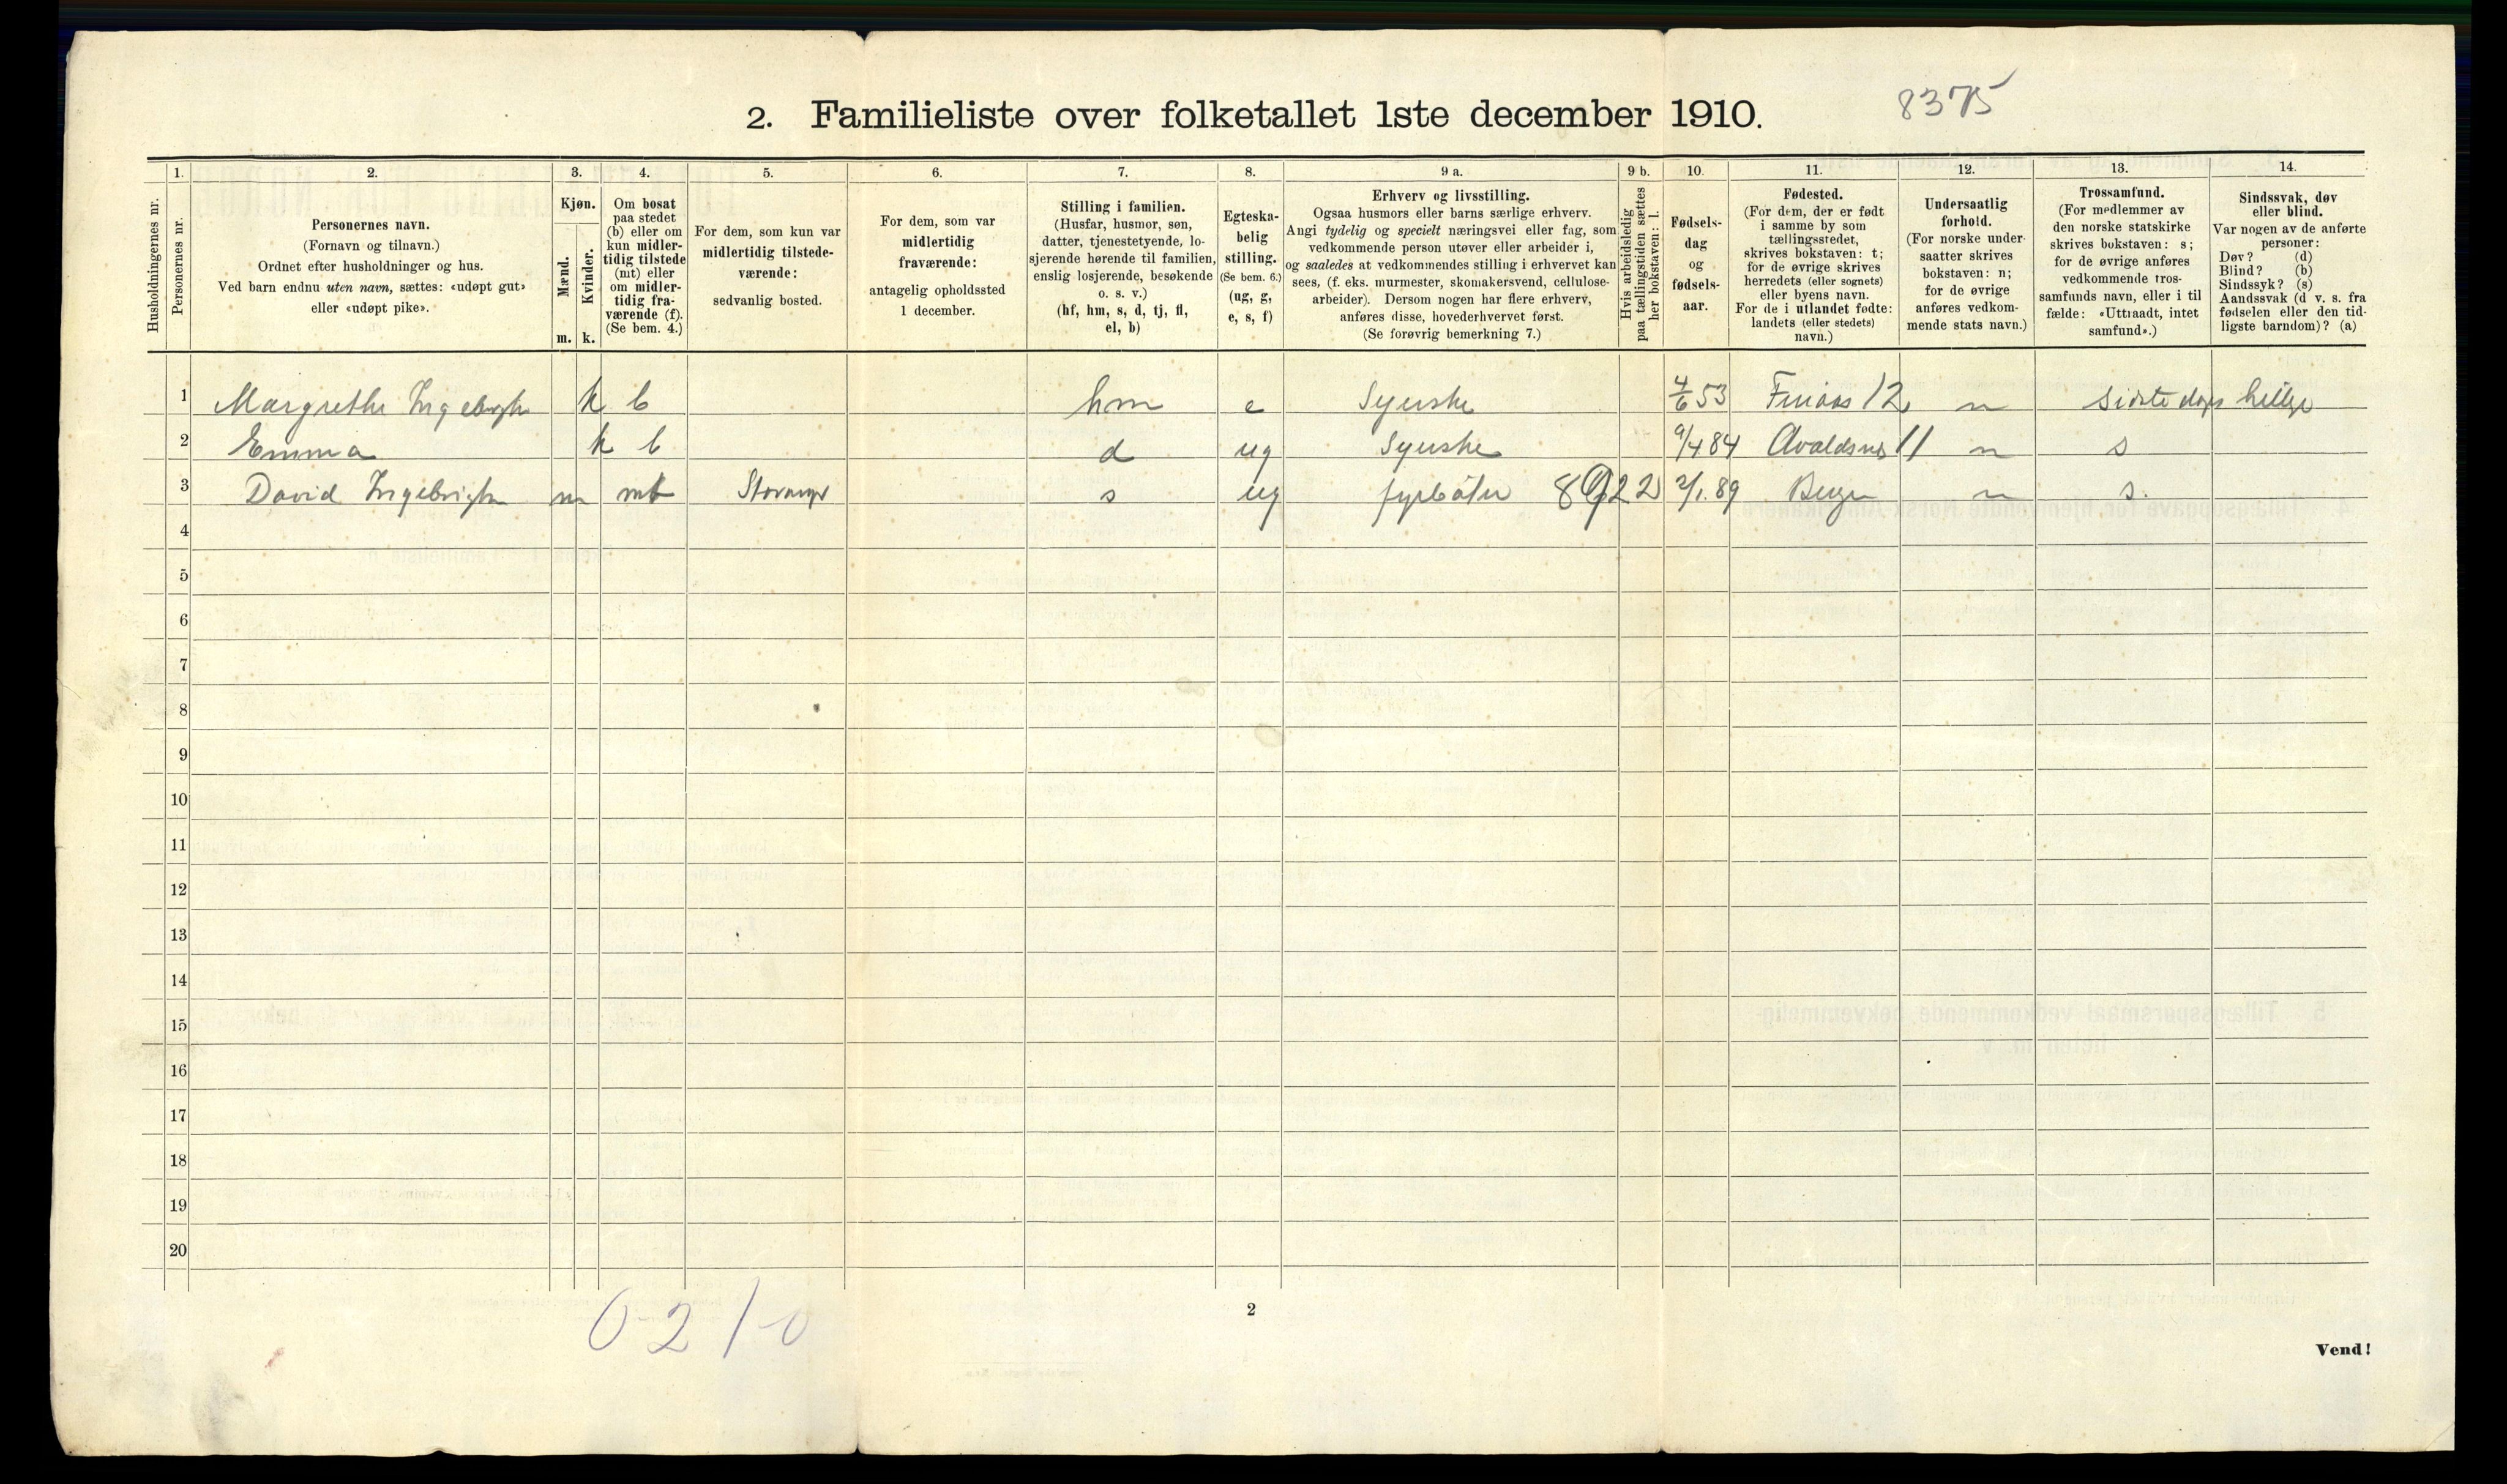 2. Familieliste over folketallet 1ste december 1910.
8375
1. 2. 3. 4. 5. 6. 7. 8. 9 a. 9 b. 10. 11. 12. 13. 14.
Husholdningernes nr.
Personernes nr.
Personernes navn.
(Fornavn og tilnavn.)
Ordnet efter husholdninger og hus.
Ved barn endnu uten navn, sættes: «udøpt gut»
eller «udøpt pike».
Kjøn.
Mænd.
Kvinder.
m. k.
Om bosat
paa stedet
(b) eller om
kun midler-
tidig tilstede
(mt) eller
om midler-
tidig fra-
værende (f).
(Se bem. 4.)
For dem, som kun var
midlertidig tilstede-
værende:
sedvanlig bosted.
For dem, som var
midlertidig
fraværende:
antagelig opholdssted
1 december.
Stilling i familien.
(Husfar, husmor, søn,
datter, tjenestetyende, lo-
sjerende hørende til familien,
enslig losjerende, besøkende
o. s. v.)
(hf, hm, s, d, tj, fl,
el, b)
Egteska-
belig
stilling.
(Se bem. 6.)
(ug, g,
e, s, f)
Erhverv og livsstilling.
Ogsaa husmors eller barns særlige erhverv.
Angi tydelig og specielt næringsvei eller fag, som
vedkommende person utøver eller arbeider i,
og saaledes at vedkommendes stilling i erhvervet kan
sees, (f. eks. murmester, skomakersvend, cellulose-
arbeider). Dersom nogen har flere erhverv,
anføres disse, hovederhvervet først.
(Se forøvrig bemerkning 7.)
Hvis arbeidsledig
paa tællingstiden sættes
her bokstaven: l.
Fødsels-
dag
og
fødsels-
aar.
Fødested.
(For dem, der er født
i samme by som
tællingsstedet,
skrives bokstaven: t;
for de øvrige skrives
herredets (eller sognets)
eller byens navn.
For de i utlandet fødte:
landets (eller stedets)
navn.)
Undersaatlig
forhold.
(For norske under-
saatter skrives
bokstaven: n;
for de øvrige
anføres vedkom-
mende stats navn.)
Trossamfund.
(For medlemmer av
den norske statskirke
skrives bokstaven: s;
for de øvrige anføres
vedkommende tros-
samfunds navn, eller i til
fælde: «Uttraadt, intet
samfund».)
Sindssvak, døv
eller blind.
Var nogen av de anførte
personer:
Døv? (d)
Blind? (b)
Sindssyk? (s)
Aandssvak (d v. s. fra
fødselen eller den tid-
ligste barndom)? (a)
1 Margrethe Ingebrigts k b hm e Syerske 4/6 53 Finaas 12 n Sidste dages hellige
2 Emma k b d ug Syerske 9/4 84 Avaldsnes 11 n s
3 David Ingebrigts m mt Stavanger s ug fyrbøter 8922 2/1.89 Bergen n s.
4
5
6
7
8
9
10
11
12
13
14
15
16
17
18
19
20
0-2 1-0
2
Vend!